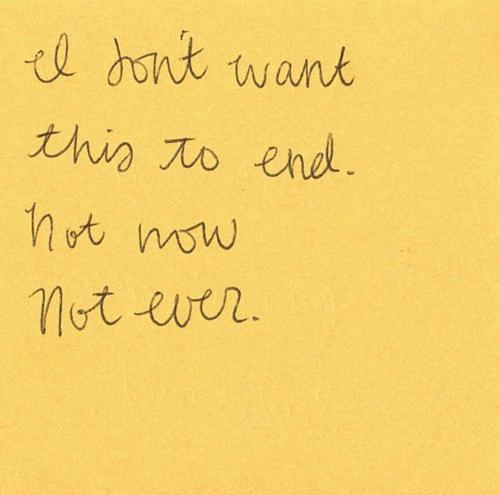 I don't want
this to end.
Not now
Not ever.